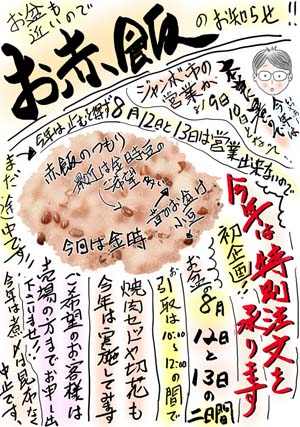 お盆も
近いので
お赤飯
のお知らせ!!
ジャンボ市の
営業が
9日10日
今年は止むを得ず8月12日と13日は営業出来ないので
まだ途中です!!
赤飯のつもり
最近は金時豆の
ご希望多い
昔のお盆は
小豆
今回は金時
今年は特別注文を
承ります
初企画!!
お盆8月
12日と13日の
二日間
お引取は10:00~12:00の間で
焼肉セットや切花も
今年は実施してみます
ご希望のお客様は
売場の方までお申し出
下さいませ!!
今年は煮〆は昆布なく
中止です。